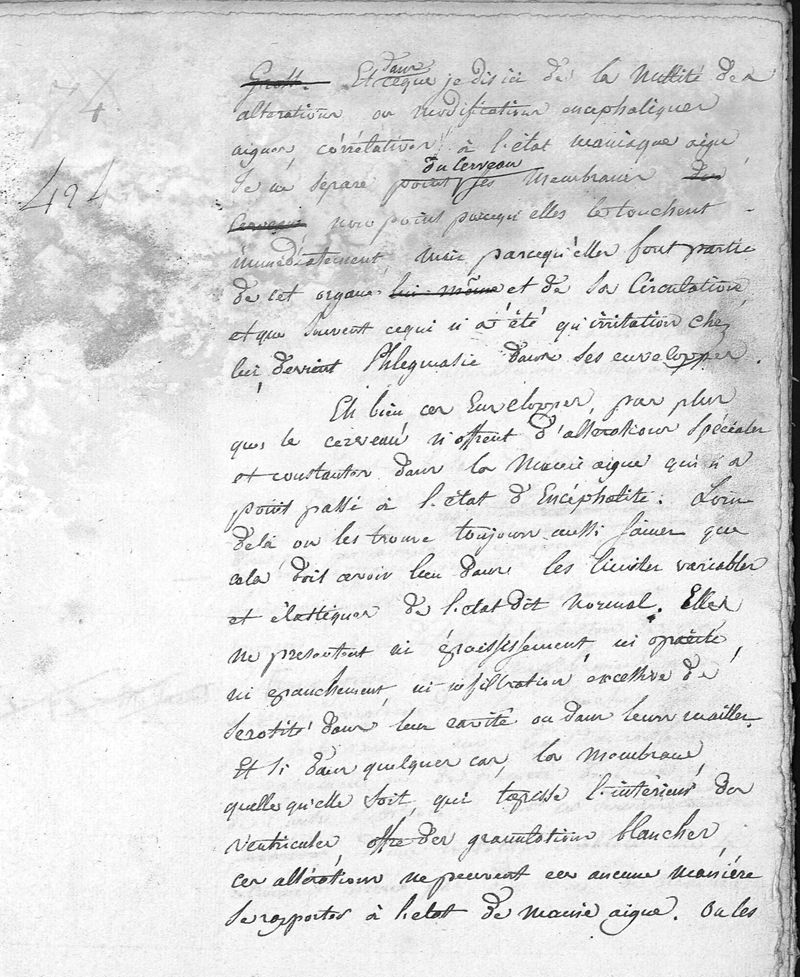 74
494
Et dans ce que je dis ici de la Nullité des
altérations ou modifications encéphaliques
aigues, corrélatives à l'état maniaque aigu
Je ne separe point du Cerveau ses Membranes
non point parcequ'elles le touchent
immédiatement, mais parcequ'elles font partie
de cet organe lui-même et de sa Circulation,
et que souvent cequi n'a été qu'irritation chez
lui, devient Phlegmasie dans ses enveloppes.
Eh bien ces Enveloppes, pas plus
que le cerveau n'offrent d'altérations spéciales
et constantes dans la Manie aigue qui n'a
point passé à l'état d'Encéphalite. Loin
delà on les trouve toujours aussi saines que
cela doit avoir lieu dans les limites variables
et élastiques de l'état dit normal. Elles
ne présentent ni épaississement, ni opacité,
ni épanchement, ni infiltration excessive de
serosité dans leur cavité ou dans leurs mailles.
Et si dans quelques cas, la Membrane,
quelle qu'elle soit, qui tapisse l'intérieur des
ventricules offre des granulations blanches,
ces altérations ne peuvent en aucune manière
se rapporter à l'état de manie aigue. On les